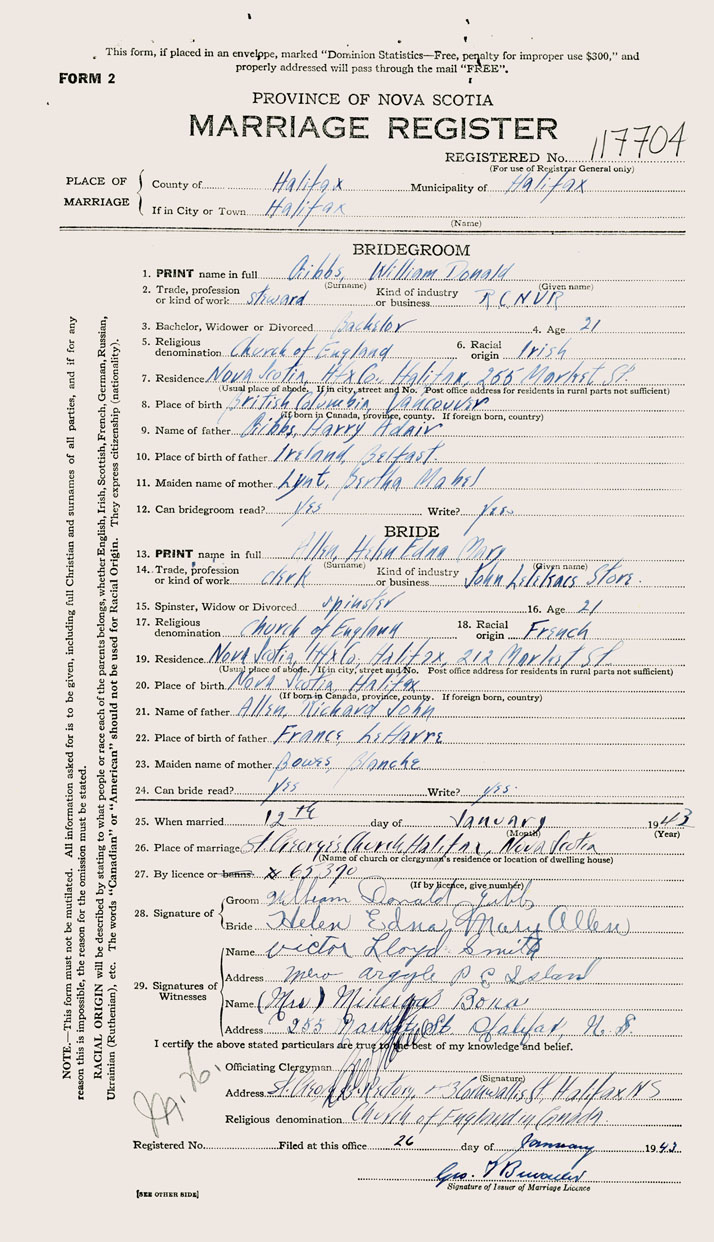 This form, if placed in an envelope, marked "Dominion Statistics—Free, penalty for improper use $300," and
properly addressed will pass through the mail "FREE".
FORM 2
PROVINCE OF NOVA SCOTIA
MARRIAGE REGISTER
REGISTERED No. 117704
(For use of Registrar General only)
PLACE OF MARRIAGE
County of Halifax Municipality of Halifax
If in City or Town Halifax
(Name)
BRIDEGROOM
1. PRINT name in full Gibbs, William Donald
(Surname) (Given name)
2. Trade, profession or kind of work steward Kind of industry or business R C N V R
3. Bachelor, Widower or Divorced Bachelor 4. Age 21
5. Religious denomination Church of England 6. Racial origin Irish
7. Residence Nova Scotia, Hfx Co. Halifax, 255 Market St.
(Usual place of abode. If in city, street and No. Post office address for residents in rural parts not sufficient)
8. Place of birth British Columbia, Vancouver
(If born in Canada, province, county. If foreign born, country)
9. Name of father Gibbs, Harry Adair
10. Place of birth of father Ireland, Belfast
11. Maiden name of mother Lynt, Bertha Mabel
12. Can bridegroom read? yes Write? yes
BRIDE
13. PRINT name in full Allen Helen Edna Mary
(Surname) (Given name)
14. Trade, profession or kind of work clerk Kind of industry or business John Store.
15. Spinster, Widow or Divorced spinster 16. Age 21
17. Religious denomination Church of England 18. Racial origin French
19. Residence Nova Scotia, Hfx Co, Halifax, 212 Market St.
(Usual place of abode. If in city, street and No. Post office address for residents in rural parts not sufficient)
20. Place of birth Nova Scotia, Halifax
(If born in Canada, province, county. If foreign born, country)
21. Name of father Allen, Richard John
22. Place of birth of father France, LeHarre
23. Maiden name of mother Bowes, Blanche
24. Can bride read? yes Write? yes
25. When married 12th day of January 1943
(Month) (Year)
26. Place of marriage St. George's Church Halifax, Nova Scotia
(Name of church or clergyman's residence or location of dwelling house)
27. By licence or banns. 65390
(If by licence, give number)
28. Signature of
Groom William Donald Gibbs
Bride Helen Edna Mary Allen
29. Signatures of Witnesses
Name Victor Lloyd Smith
Address argyle P E Island
Name (Mrs) Bona
Address 255 Market St. Halifax, N.S.
I certify the above stated particulars are true to the best of my knowledge and belief.
Officiating Clergyman
(Signature)
Address St. Cornwallis St, Halifax NS
Religious denomination Church of England in Canada
Registered No. Filed at this office 26 day of January 1943
Geo.
Signature of Issuer of Marriage Licence
[SEE OTHER SIDE]
NOTE.—This form must not be mutilated. All information asked for is to be given, including full Christian and surnames of all parties, and if for any
reason this is impossible, the reason for the omission must be stated.
RACIAL ORIGIN will be described by stating to what people or race each of the parents belongs, whether English, Irish, Scottish, French, German, Russian,
Ukrainian (Ruthenian), etc. The words "Canadian" or "American" should not be used for Racial Origin. They express citizenship (nationality).